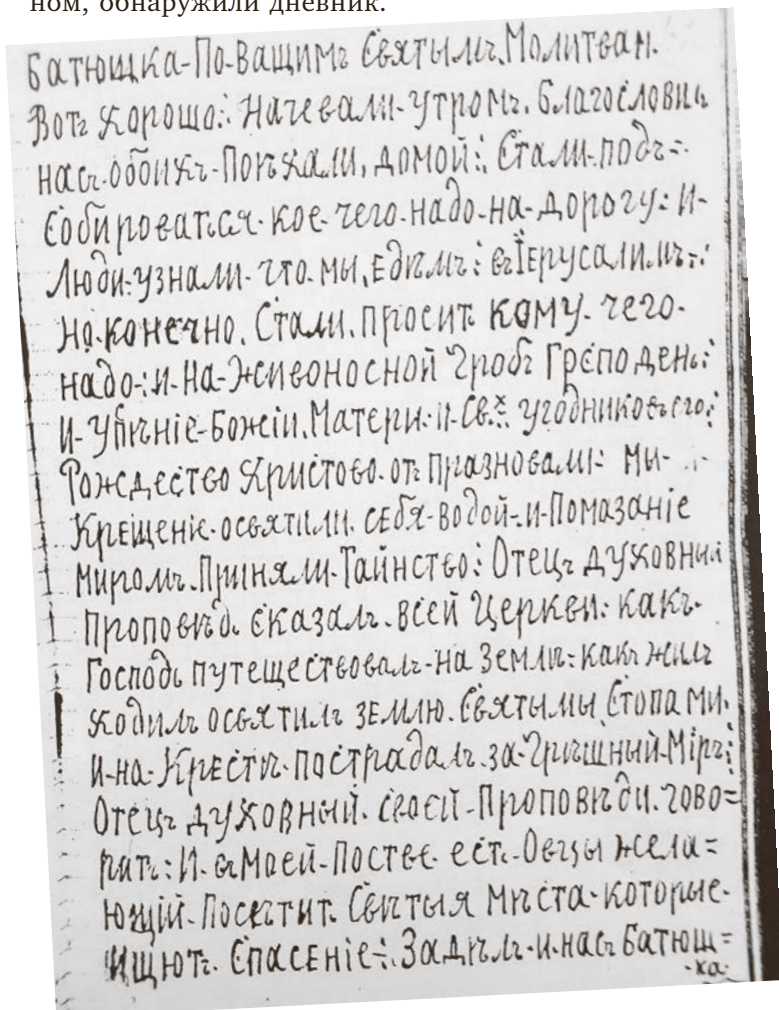 ном, обнаружили дневник.
Батюшка-По-Вашимъ Святымъ. Молитвам.
Вотъ Хорошо: Начевали-утромъ. Благословилъ
насъ-обоихъ-Поѣхали, домой: Стали-подъ=
Собироваться-кое-чего-надо-на-дорогу: и-
Люди-узнали-что-мы, Едимъ: въ Іерусалимъ-:
но-конечно. Стали. просить кому-чего-
надо-: и-на-Живоносной Гробъ Гсподень:
и-Успѣніе-Божіи. Матери: и-Св.х угодниковъ его:
Рождество Христово-отъ празновали- мы-
Крещеніе-освятили. себя-водой-и-Помазаніе
Миромъ. Приняли-Тайнство: Отецъ духовный
Проповѣдь сказалъ-всей Церкви: какъ-
Господь путешествовалъ-на Земли: какъ жилъ
ходилъ освятилъ землю. Святымы Стопами.
и-на-Крестѣ-пострадалъ-за-Грѣшный-Міръ:
Отецъ духовный. своей-Проповѣди. гово=
ритъ: И-въ Моей-Постве-есть-Овцы жела=
ющій-Посетить Святыя Мѣста-которые-
Ищютъ. Спасеніе-: Задѣлъ-и-насъ Батюш=
ка.